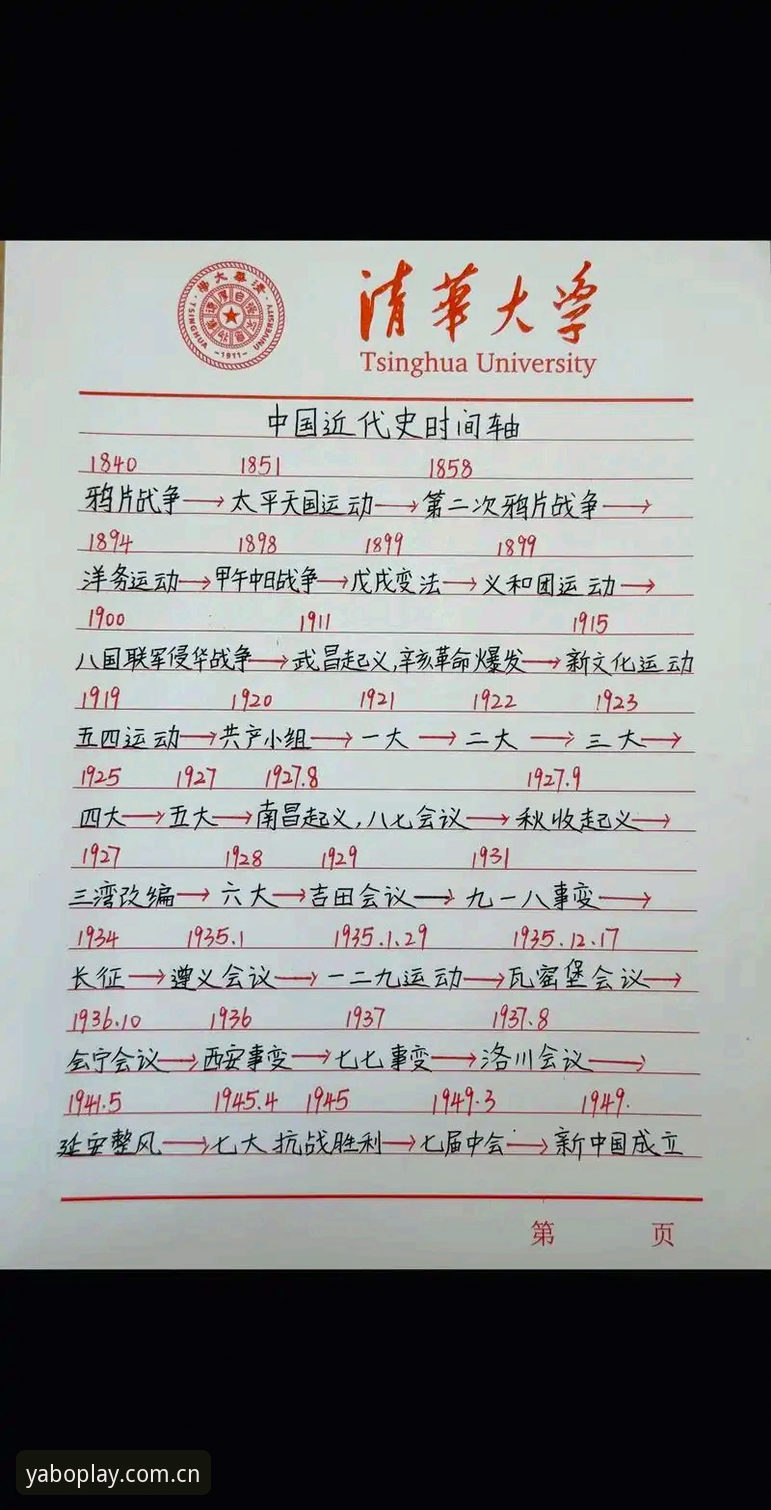 清華大學
Tsinghua University
TSINGHUA UNIVERSITY
-1911-
中国近代史时间轴
1840 1851 1858
鸦片战争→太平天国运动→第二次鸦片战争→
1894 1898 1899 1899
洋务运动→甲午中日战争→戊戌变法→义和团运动→
1900 1911 1915
八国联军侵华战争→武昌起义,辛亥革命爆发→新文化运动
1919 1920 1921 1922 1923
五四运动→共产小组→一大→二大→三大→
1925 1927 1927.8 1927.9
四大→五大→南昌起义,八七会议→秋收起义→
1927 1928 1929 1931
三湾改编→六大→吉田会议→九一八事变→
1934 1935.1 1935.1.29 1935.12.17
长征→遵义会议→一二九运动→瓦窑堡会议→
1936.10 1936 1937 1937.8
会宁会议→西安事变→七七事变→洛川会议→
1941.5 1945.4 1945 1949.3 1949.
延安整风→七大 抗战胜利→七届中会→新中国成立
第 页
yaboplay.com.cn